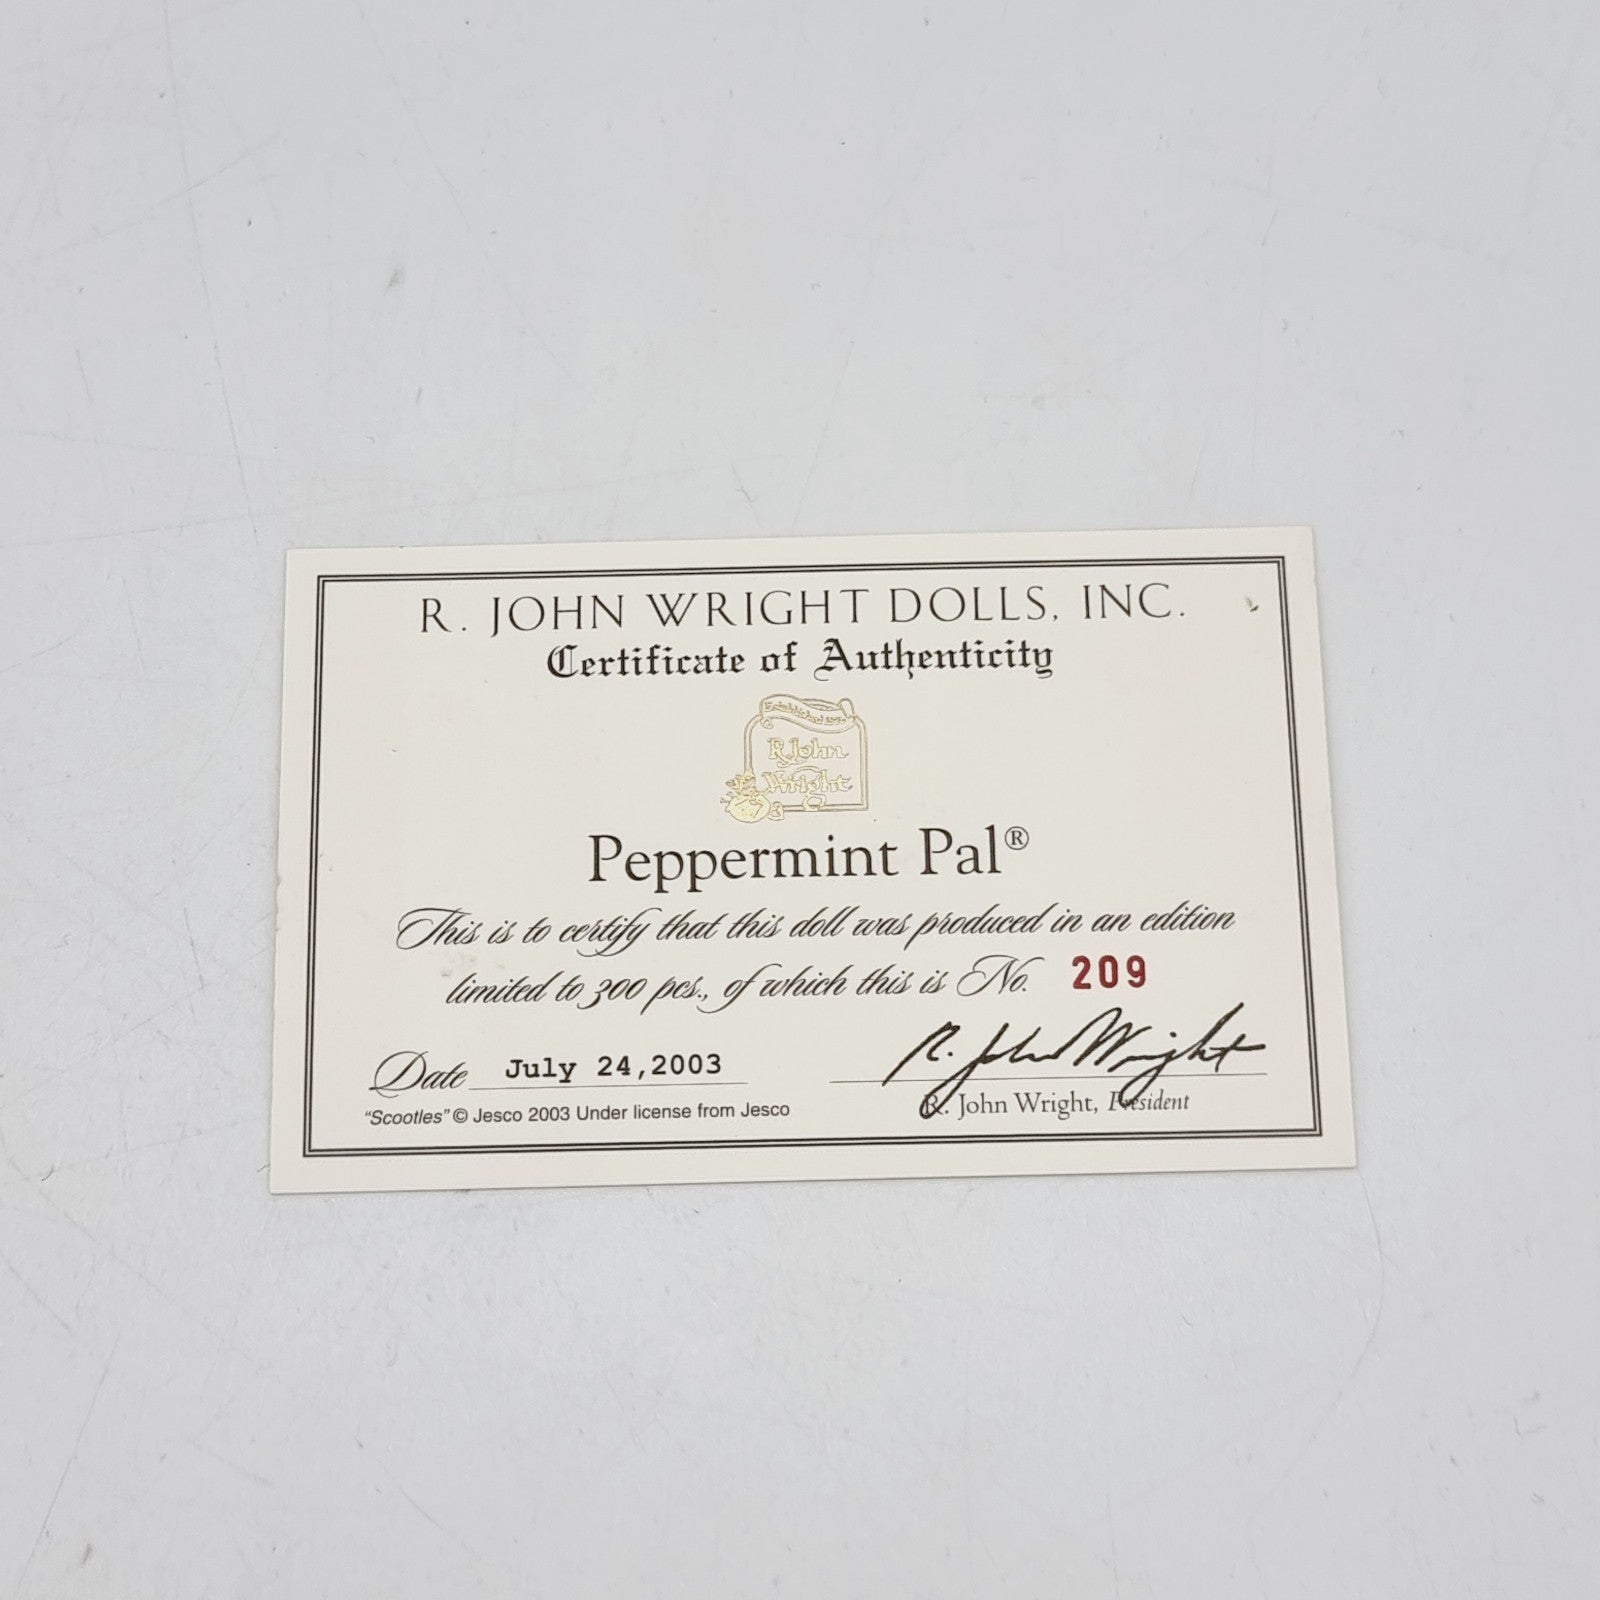 R. JOHN WRIGHT DOLLS, INC.
Certificate of Authenticity
R. John
Wright
Peppermint Pal®
This is to certify that this doll was produced in an edition
limited to 300 pcs., of which this is No. 209
R. John Wright
Date July 24,2003
R. John Wright, President
"Scootles" © Jesco 2003 Under license from Jesco